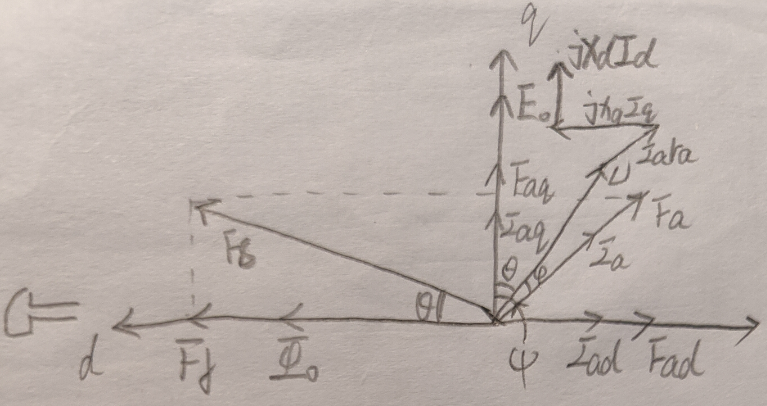 q
jXdId
E₀
jXqIq
Iara
Faq
U
Fa
Iaq
Fδ
θ
φ
Ia
θ
d
Ff
Φ₀
ψ
Iad
Fad